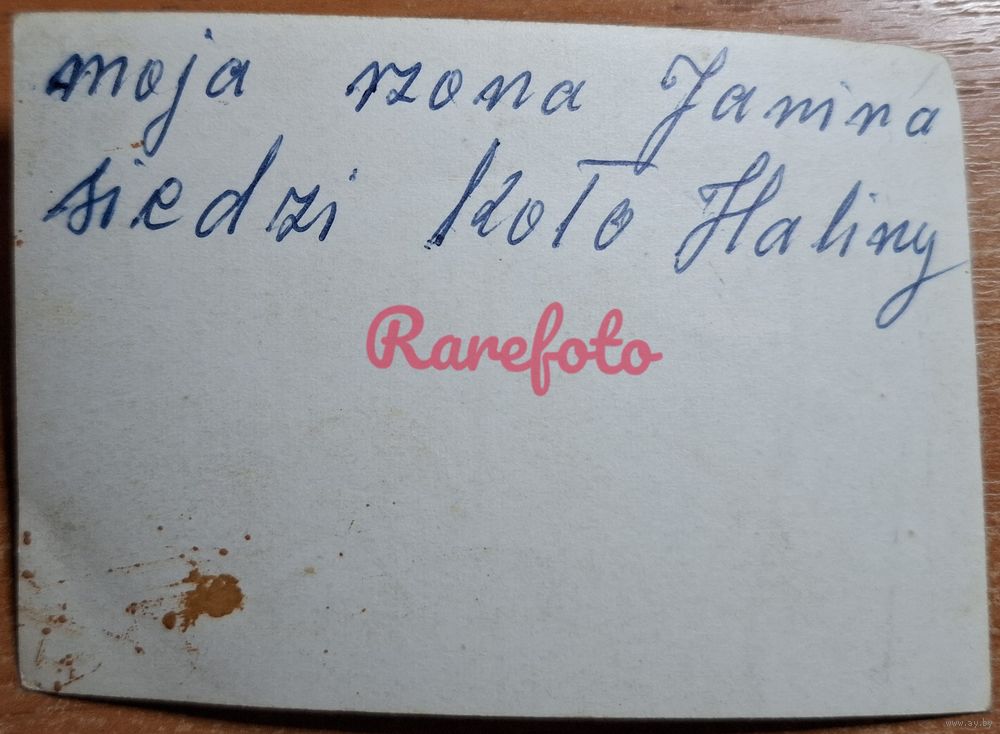 moja rzona Janina
siedzi koło Haliny
Rarefoto
www.ay.by